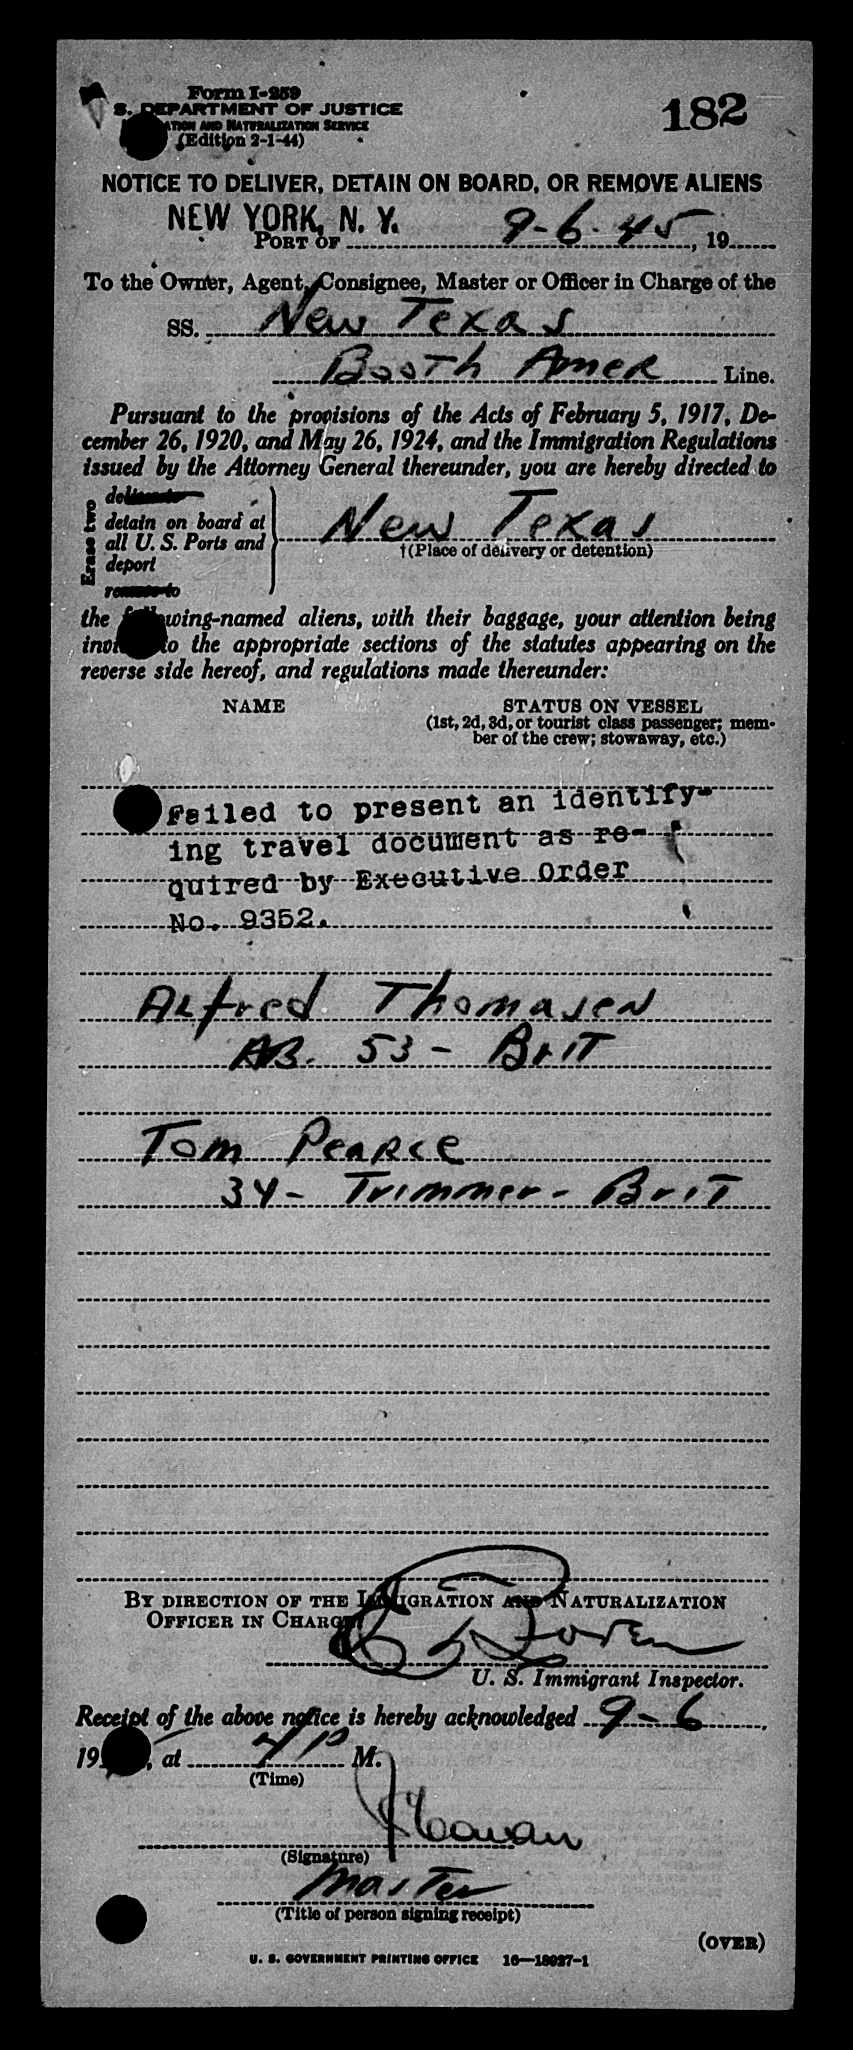 Form I-259
182
S. DEPARTMENT OF JUSTICE
AND NATURALIZATION SERVICE
(Edition 2-1-44)
NOTICE TO DELIVER, DETAIN ON BOARD, OR REMOVE ALIENS
NEW YORK, N. Y.
PORT OF 9-6-45, 19
To the Owner, Agent, Consignee, Master or Officer in Charge of the
SS. New Texas
Booth Amer Line.
Pursuant to the provisions of the Acts of February 5, 1917, De-
cember 26, 1920, and May 26, 1924, and the Immigration Regulations
issued by the Attorney General thereunder, you are hereby directed to
Erase two
detain on board at
all U. S. Ports and
deport
New Texas
†(Place of delivery or detention)
the following-named aliens, with their baggage, your attention being
to the appropriate sections of the statutes appearing on the
reverse side hereof, and regulations made thereunder:
NAME
STATUS ON VESSEL
(1st, 2d, 3d, or tourist class passenger; mem-
ber of the crew; stowaway, etc.)
Failed to present an identify-
ing travel document as re-
quired by Executive Order
No. 9352.
Alfred Thomasen
AB. 53 - Brit
Tom Pearce
34 - Trimmer - Brit
BY DIRECTION OF THE IMMIGRATION AND NATURALIZATION
OFFICER IN CHARGE
U. S. Immigrant Inspector.
Receipt of the above notice is hereby acknowledged 9-6,
19, at 4 P M.
(Time)
(Signature)
Master
(Title of person signing receipt)
(OVER)
U. S. GOVERNMENT PRINTING OFFICE 16—18927-1